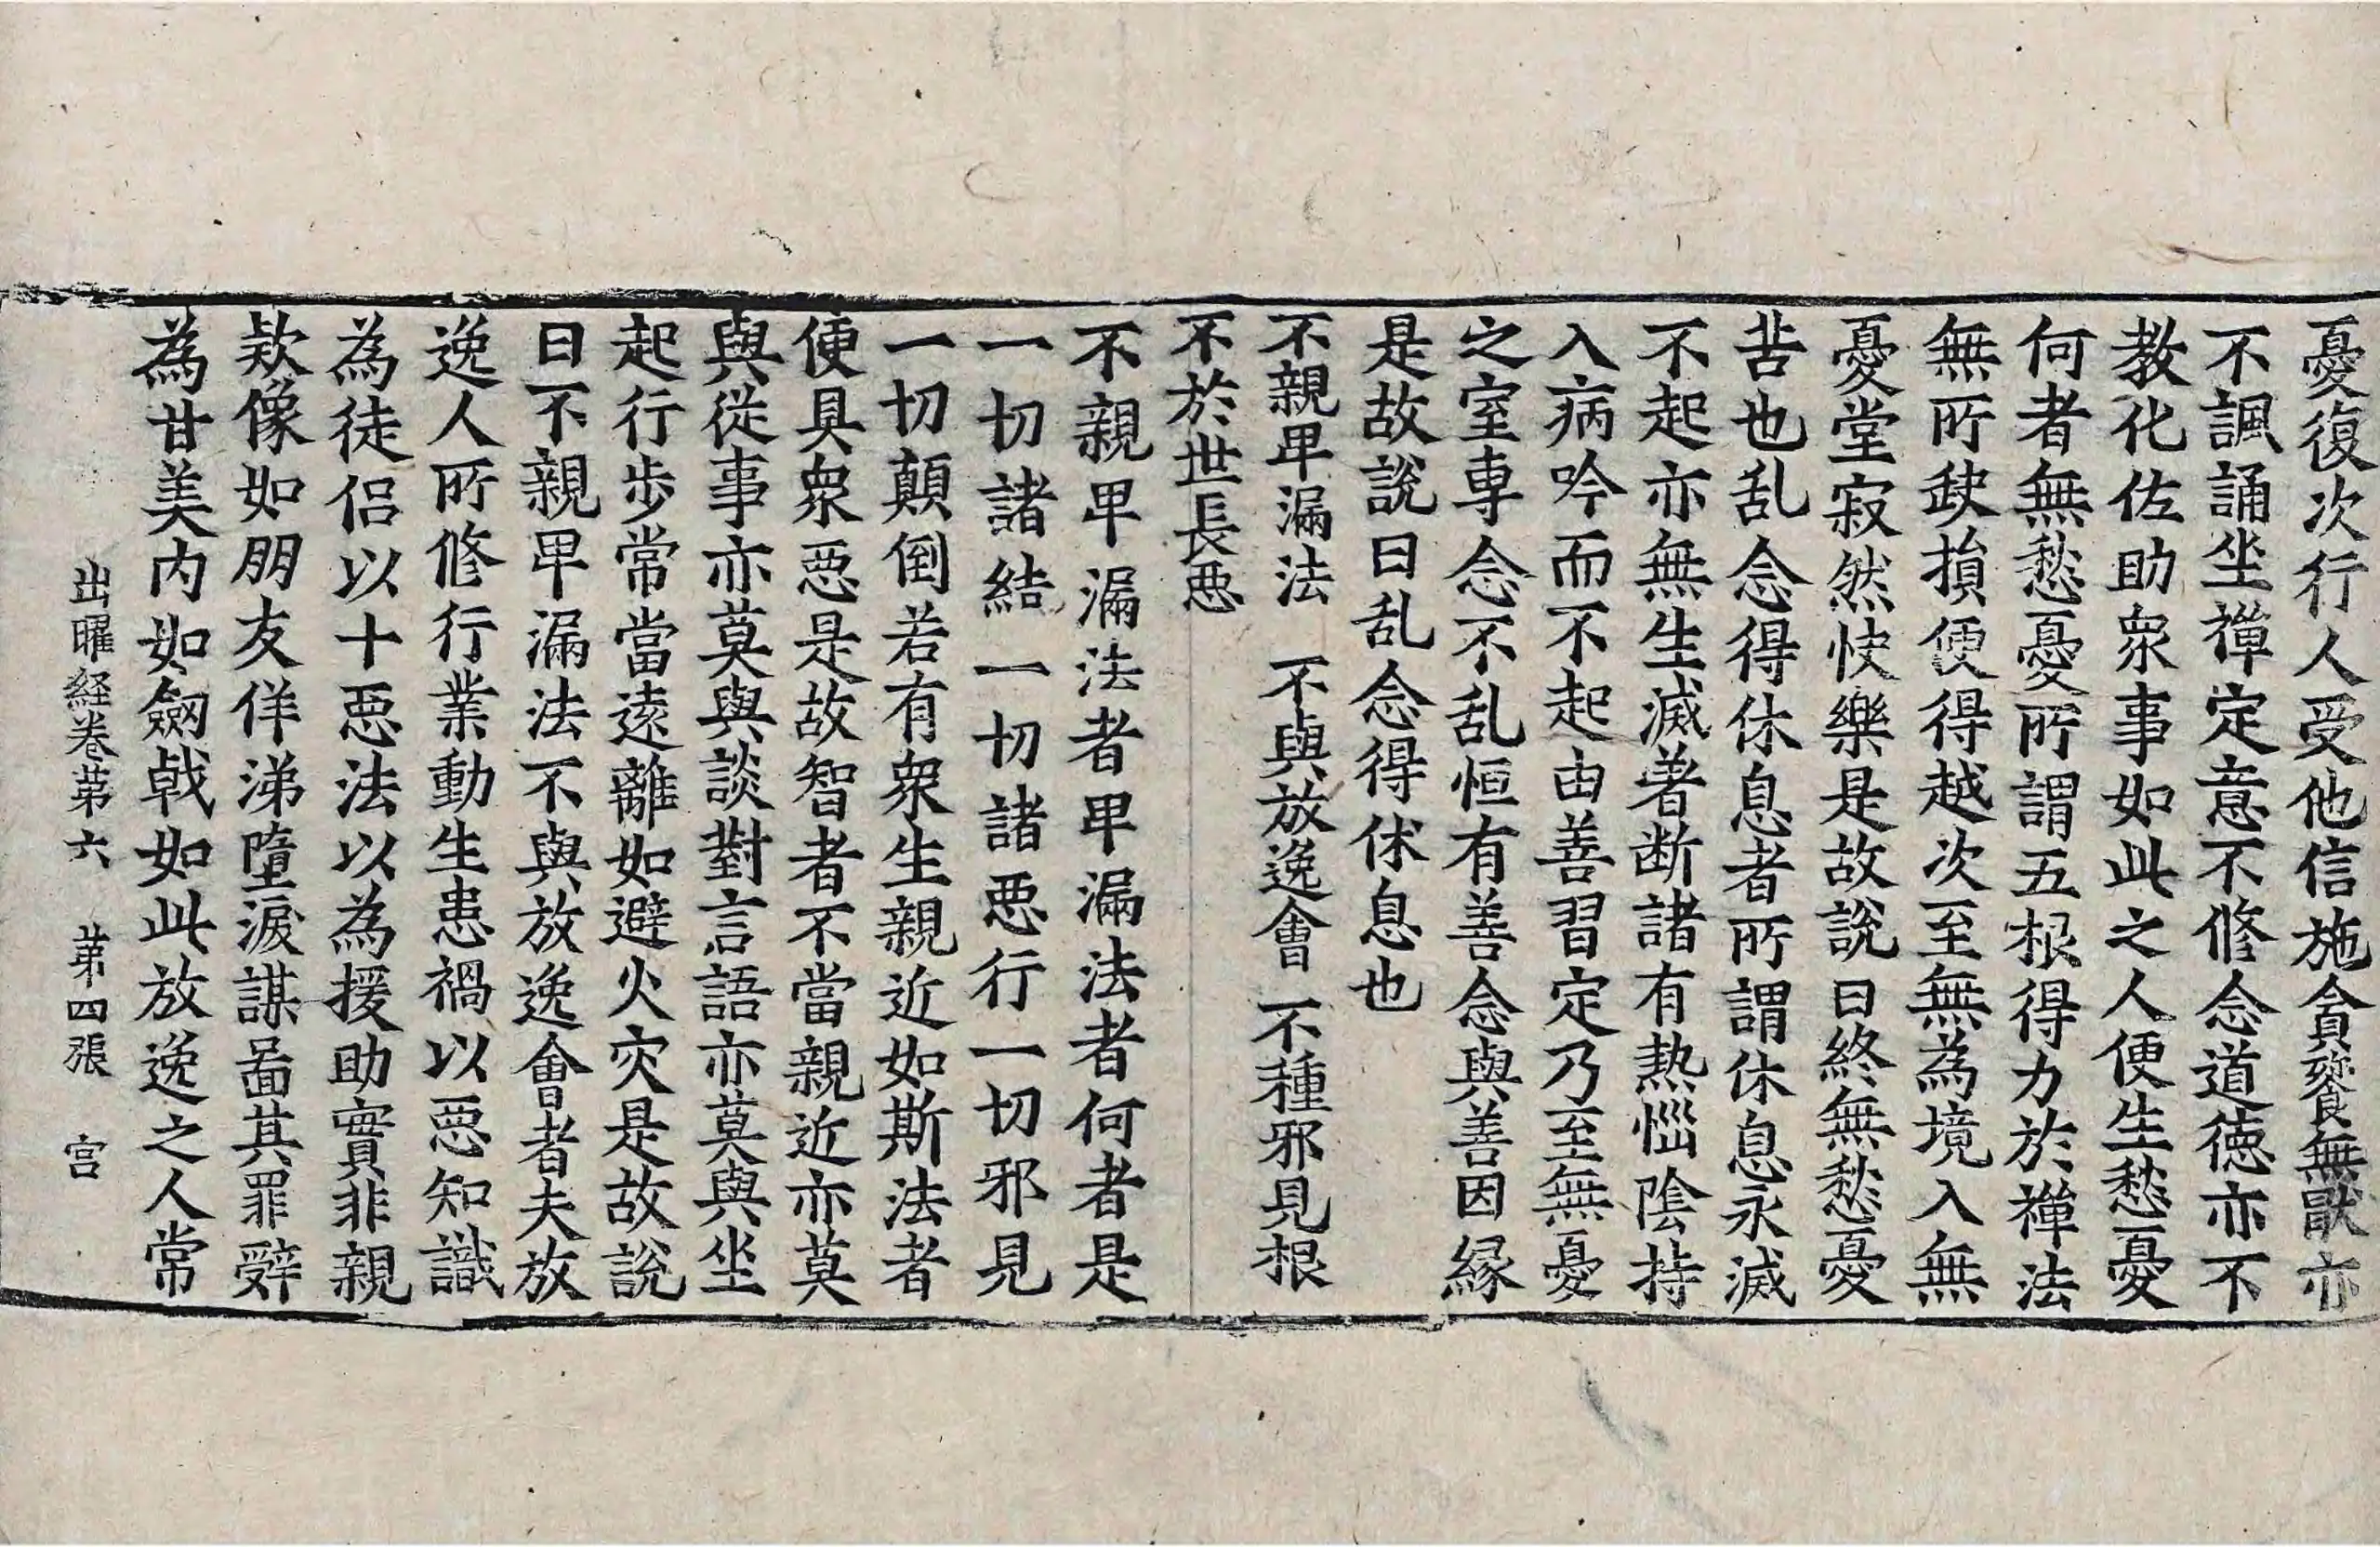 憂復次行人受他信施貪餮無猒亦
不諷誦坐禪定意不修念道德亦不
教化佐助衆事如此之人便生愁憂
何者無愁憂所謂五根得力於禪法
無所缺損便得越次至無為境入無
憂堂寂然快樂是故說曰終無愁憂
苦也乱念得休息者所謂休息永滅
不起亦無生滅著断諸有熱惱陰持
入病吟而不起由善習定乃至無憂
之室專念不乱恒有善念與善因縁
是故說曰乱念得休息也
不親卑漏法　不與放逸會　不種邪見根
不於世長惡
不親卑漏法者卑漏法者何者是
一切諸結一切諸惡行一切邪見
一切顛倒若有衆生親近如斯法者
便具衆惡是故智者不當親近亦莫
與從事亦莫與談對言語亦莫與坐
起行步常當遠離如避火灾是故說
曰不親卑漏法不與放逸會者夫放
逸人所修行業動生患禍以惡知識
為徒侣以十惡法以為援助實非親
欵像如朋友佯涕墮淚謀啚其罪辤
為甘美内如劒戟如此放逸之人常
出曜経卷苐六　苐四張　宫